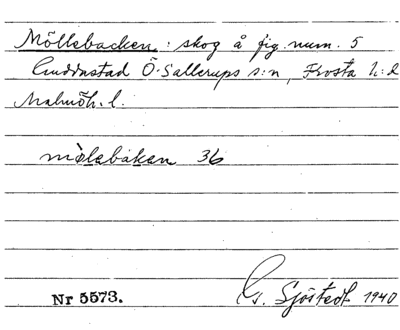 Möllebacken : skog å fig. num. 5
Gudmstad Ö. Sallerups s:n, Frosta h:d
Malmöh. l.
mölebaken 36
Nr 5573.
G. Sjöstedt 1940